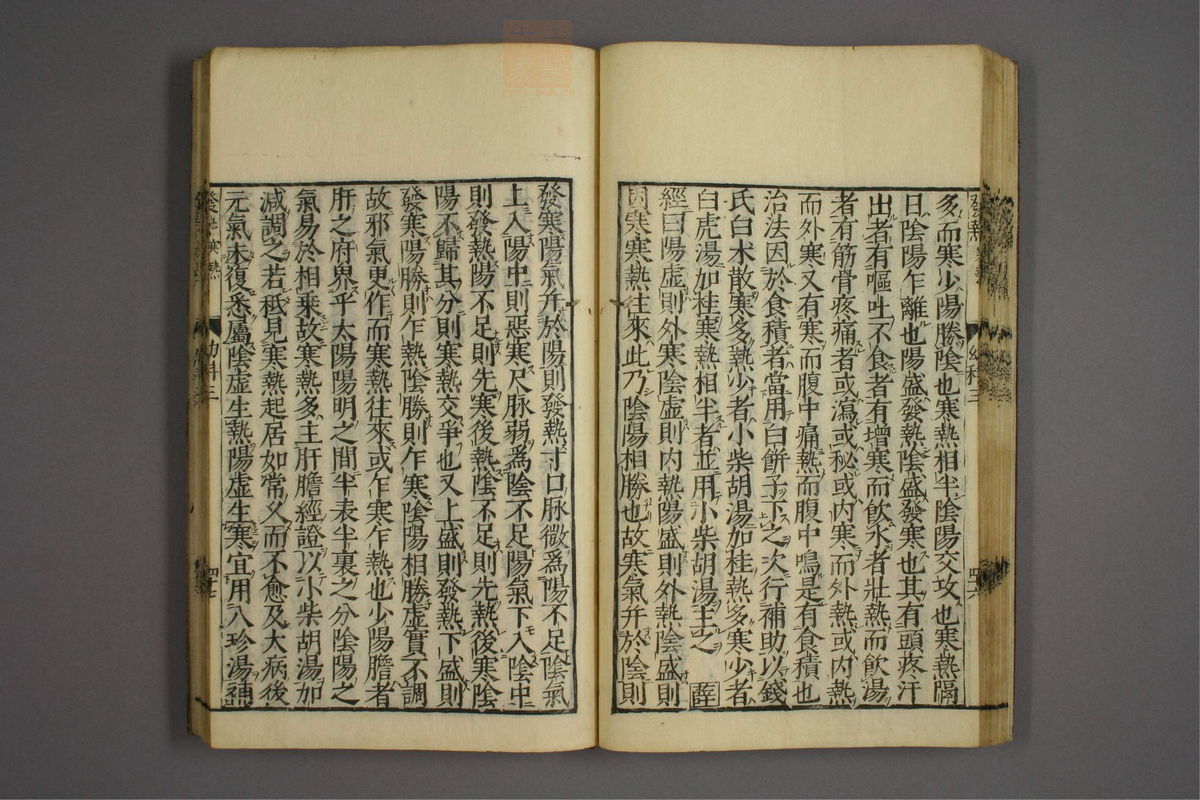 多而寒少陽勝陰也寒熱相半陰陽交攻也寒熱隔
日陰陽乍離也陽盛發熱陰盛發寒也其有頭疼汗
出者有嘔吐不食者有增寒而飲水者壯熱而飲湯
者有筋骨疼痛者或瀉或秘或内寒而外熱或内熱
而外寒又有寒而腹中痛熱而腹中鳴是有食積也
治法因於食積者當用白餅子下之次行補助以錢
氏白术散寒多熱少者小柴胡湯加桂熱多寒少者
白虎湯加桂寒熱相半者並用小柴胡湯主之
經曰陽虛則外寒陰虛則内熱陽盛則外熱陰盛則
内寒寒熱往來此乃陰陽相勝也故寒氣并於陰則
發寒陽氣并於陽則發熱寸口脉微爲陽不足陰氣
上入陽中則惡寒尺脉弱爲陰不足陽氣下入陰中
則發熱陽不足則先寒後熱陰不足則先熱後寒陰
陽不歸其分則寒熱交爭也又上盛則發熱下盛則
發寒陽勝則乍熱陰勝則乍寒陰陽相勝虛實不調
故邪氣更作而寒熱往來或乍寒乍熱也少陽膽者
肝之府界乎太陽陽明之間半表半裏之分陰陽之
氣易於相乘故寒熱多主肝膽經證以小柴胡湯加
減調之若秪見寒熱起居如常久而不愈及大病後
元氣未復悉屬陰虛生熱陽虛生寒宜用八珍湯補
幼科三
四七